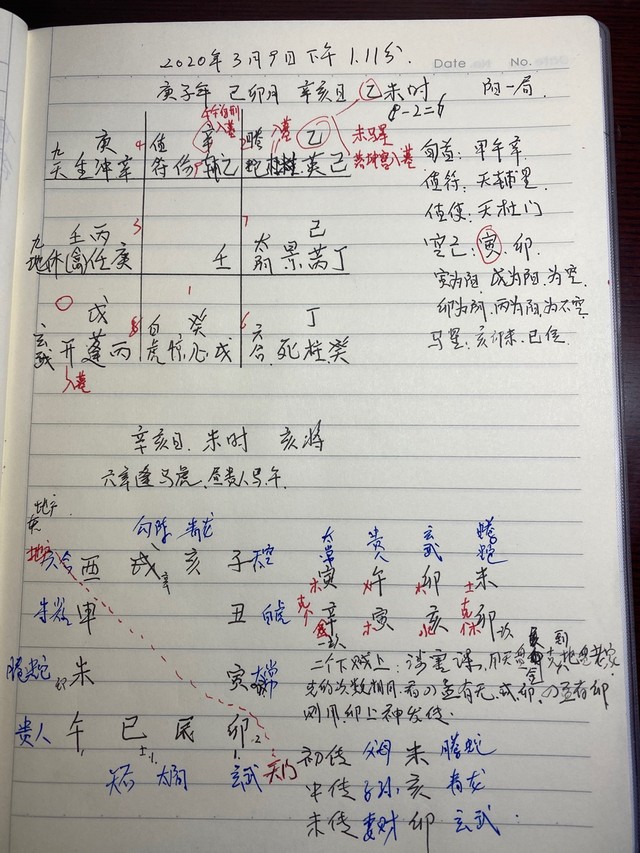 Date No.
2020年3月9日下午1.11分.
庚子年 己卯月 辛亥日 乙未时 阴一局.
8-2=6
庚 4 值 辛 2 螣 入墓 乙 未马星
九天 生冲辛 符 己 蛇 英己 入墓
旬首: 甲午辛
值符: 天辅星
值使: 天杜门
壬丙 3 7 己
九地 休(禽)任庚 壬 太阴 景芮丁
空亡: 寅.卯
寅为阳, 戌为阳.为空
卯为阴, 丙为阳.为不空
马星: 亥卯未.巳位
戊 1 癸 丁
玄武 开蓬丙 8 白虎 惊心戊 6 六合 死柱癸
入墓
辛亥日. 未时 亥将
六辛逢马虎.昼贵人马午
地户
勾陈 青龙 太常 贵人 玄武 螣蛇
六合 酉 戌 亥 子 天空 寅 午 卯 未
木 火 木 土
朱雀 申 丑 白虎 辛 寅 亥 卯
金 木 水 木
螣蛇 未 寅 太常
贵人 午 巳 辰 卯
天后 太阴 玄武 天门
二个下贼上: 涉害课
则用.卯上神发传.
初传 父母 未 螣蛇
中传 子孙 亥 青龙
末传 妻财 卯 玄武